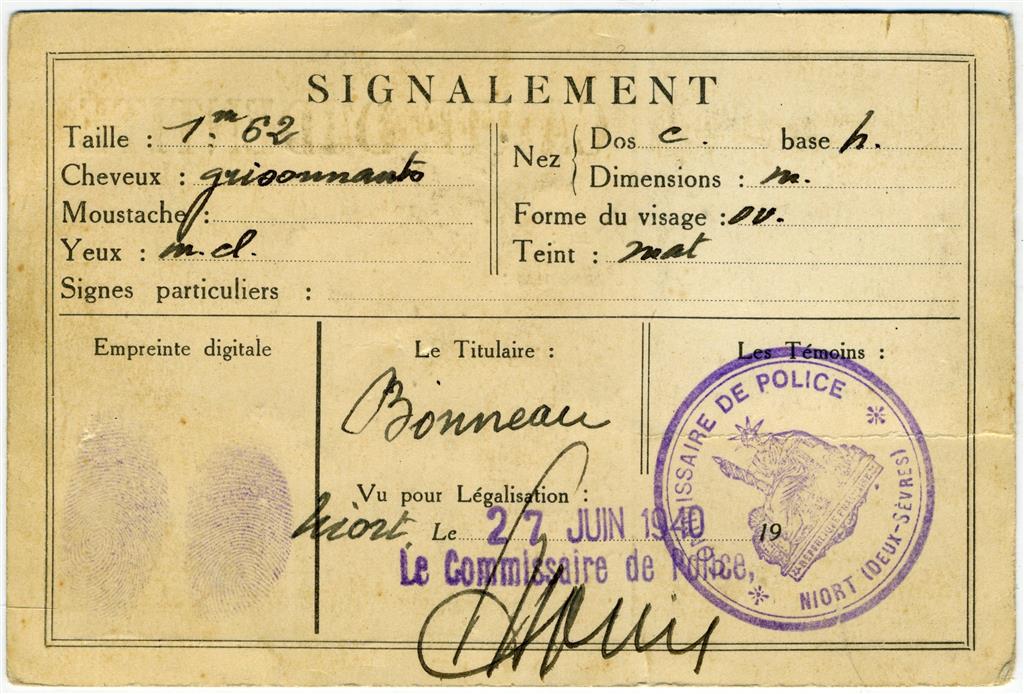 SIGNALEMENT
Taille : 1m. 62
Cheveux : grisonnants
Moustache :
Yeux : m. cl.
Signes particuliers :
Nez { Dos c. base h.
Dimensions : m.
Forme du visage : ov.
Teint : mat
Empreinte digitale
Le Titulaire :
Bonneau
Les Témoins :
Vu pour Légalisation :
Niort, Le 27 JUIN 1940 19
Le Commissaire de Police,
COMMISSAIRE DE POLICE
* NIORT (DEUX-SÈVRES) *
RÉPUBLIQUE FRANÇAISE